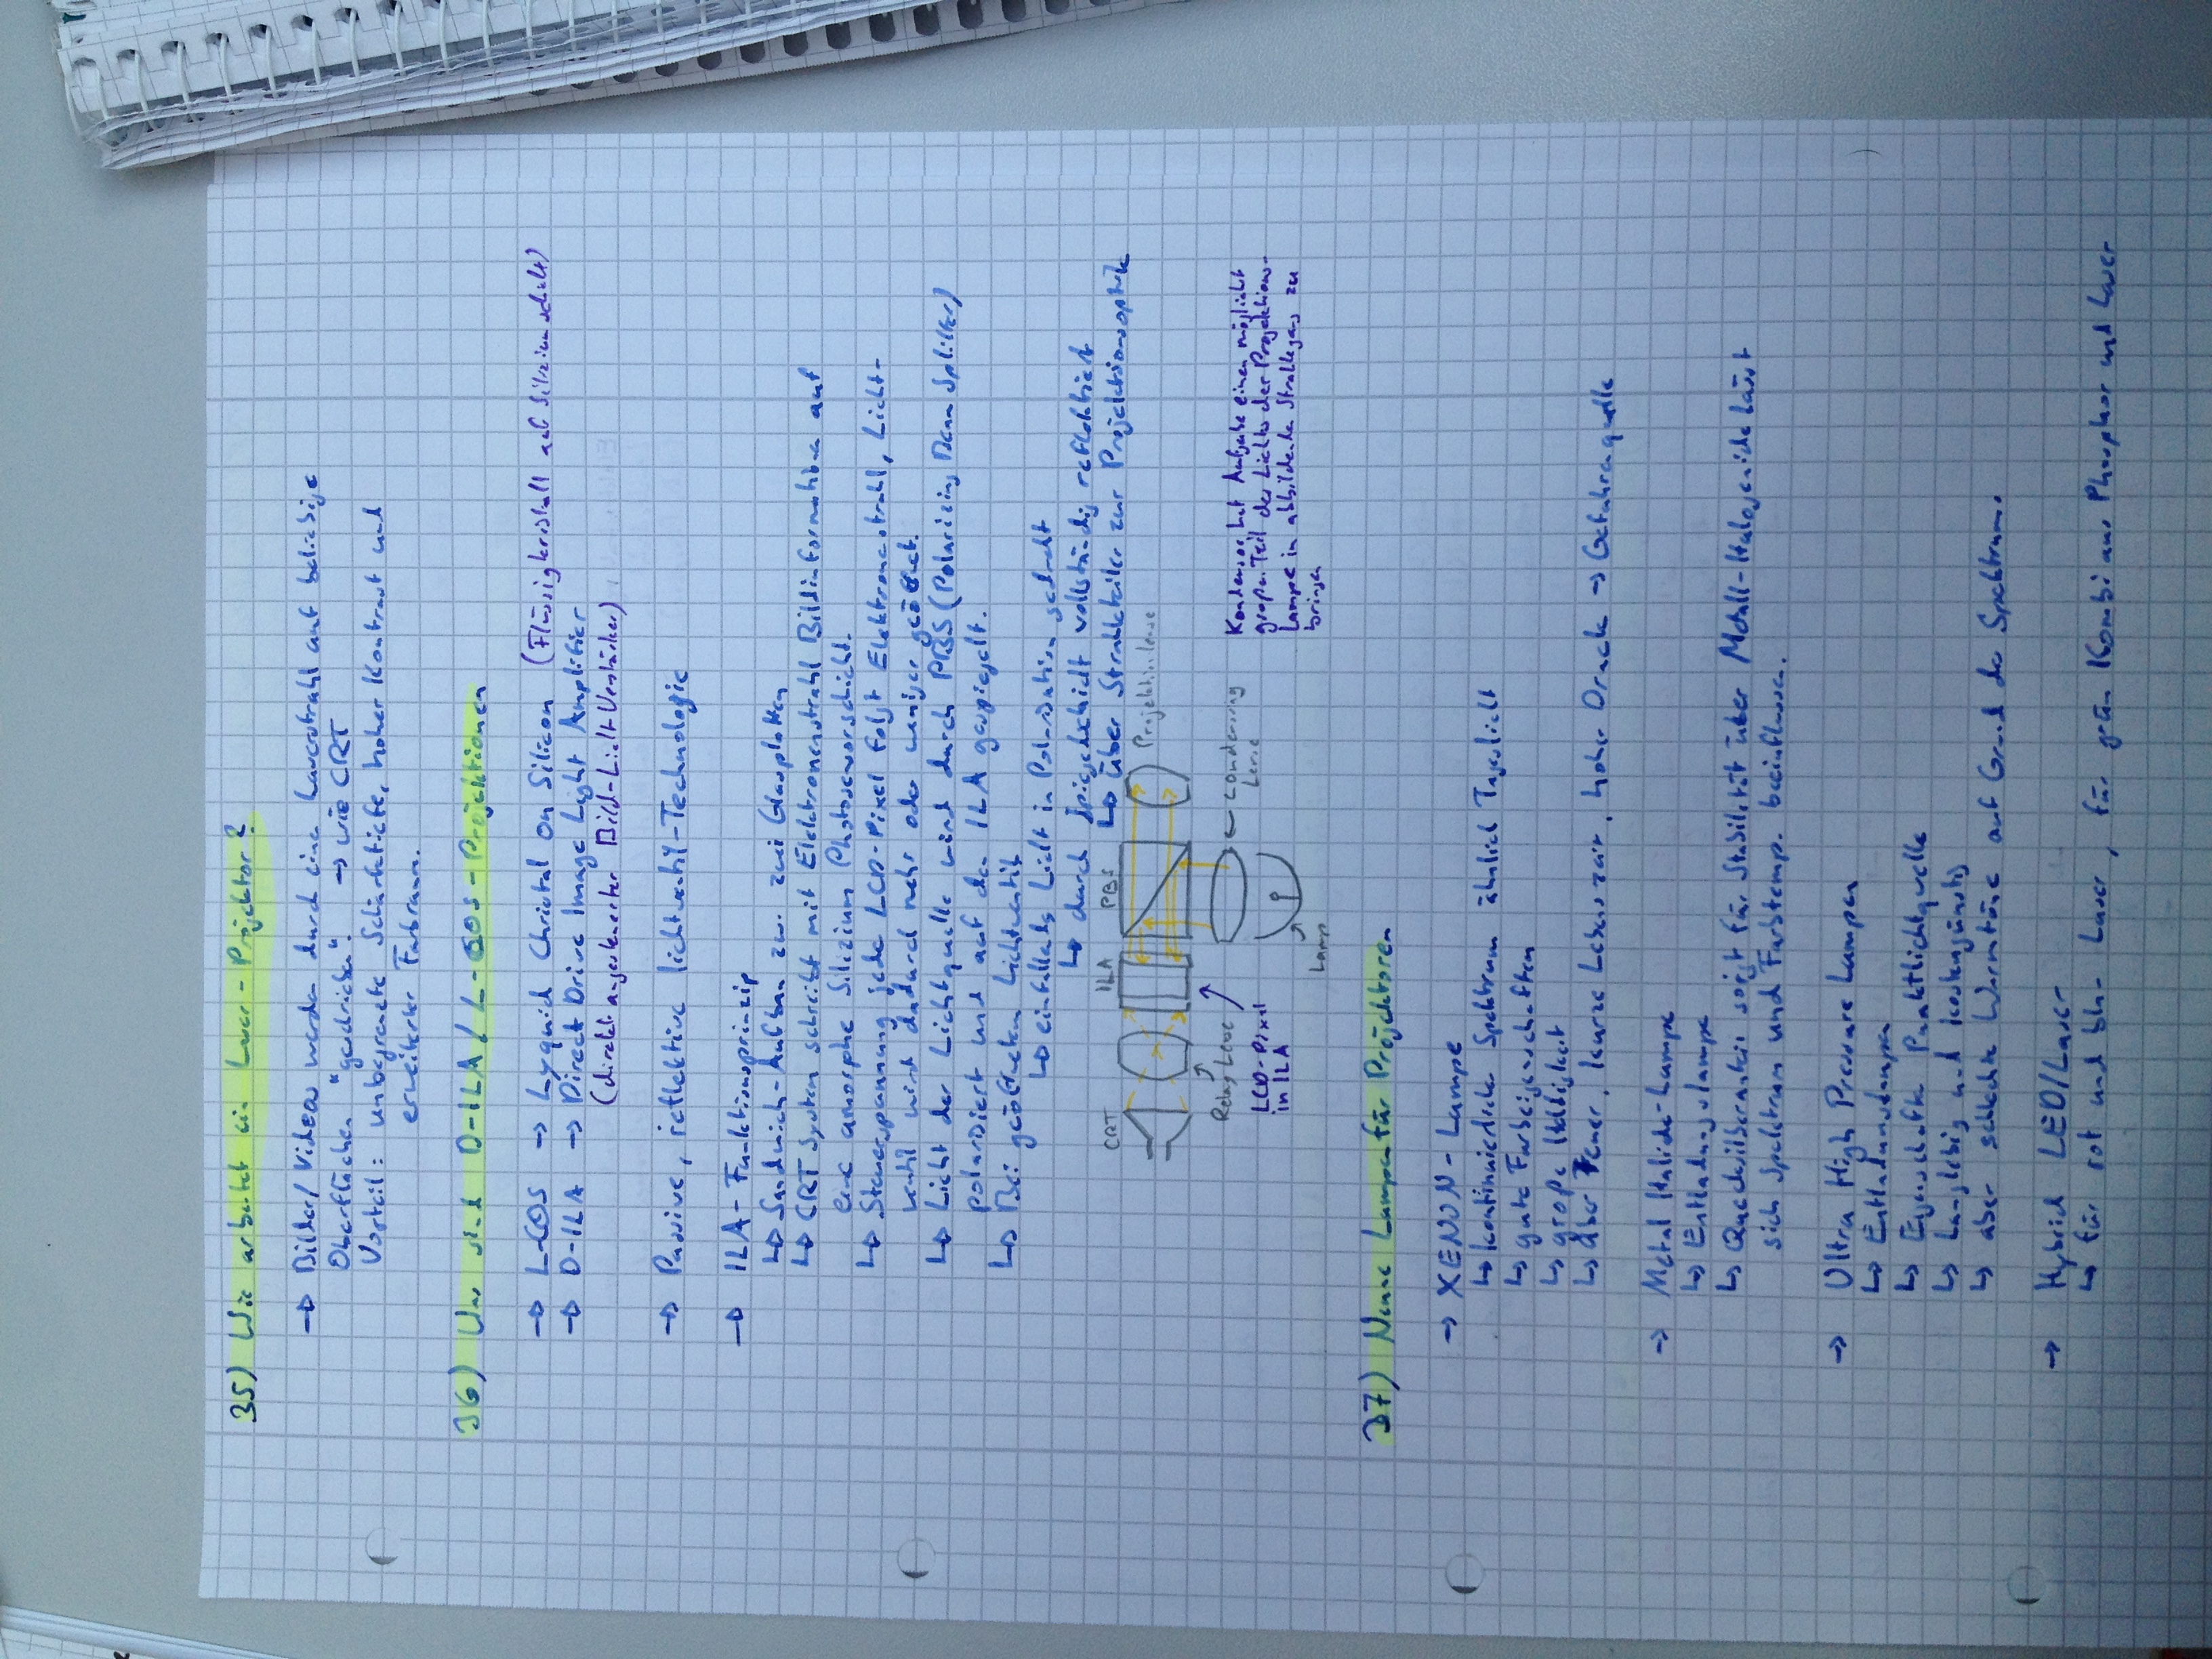 35) Wie arbeitet ein Laser-Projektor?
→ Bilder/Videos werden durch eine Laserstrahl auf beliebige
Oberflächen "geschrieben". → wie CRT
Vorteil: unbegrenzte Schärfetiefe, hoher Kontrast und
erweiterter Farbraum.
36) Was sind D-ILA / L-COS-Projektionen
→ L-COS → Lyquid Christal On Silicon (Flüssigkristall auf Siliziumschicht)
→ D-ILA → Direct Drive Image Light Amplifier
(direkt angesteuerter Bild-Licht Verstärker)
→ Passive, reflektive lichtventil-Technologie
→ ILA-Funktionsprinzip
↳ Sandwich-Aufbau zw. zwei Glasplatten
↳ CRT System schreibt mit Elektronenstrahl Bildinformation auf
eine amorphe Silizium Photosensorschicht.
↳ Steuerspannung jede LCD-Pixel folgt Elektronenstrahl, Licht-
ventil wird dadurch mehr oder weniger geöffnet.
↳ Licht der Lichtquelle wird durch PBS (Polarizing Beam Splitter)
polarisiert und auf den ILA gespiegelt.
↳ Bei geöffneten Lichtventil
↳ einfallends Licht in Polarisation gedreht
↳ durch Spiegelschicht vollständig reflektiert
↳ über Strahlteiler zur Projektionsoptik
CRT ILA PBS Projektionslense
Relay Lense
LCD-Pixel
in ILA
Lamp
Condensing
Lense
Kondensor hat Aufgabe einen möglichst
großen Teil des Lichts der Projektions-
Lampe in abbildende Strahlegang zu
bringen
37) Nenne Lampen für Projektoren
→ XENON-Lampe
↳ kontinuierliche Spektrum ähnlich Tageslicht
↳ gute Farbeigenschaften
↳ große Helligkeit
↳ Aber teuer, kurze Lebenszeit, hoher Druck → Gefahrenquelle
→ Metal Halide-Lampe
↳ Entladungslampe
↳ Quecksilberanteil sorgt für Stabilität über Metall-Halogenide lässt
sich Spektrum und Farbtemp. beeinflussen.
→ Ultra High Pressure Lampen
↳ Entladunslampen
↳ Eigenschafte Punktlichtquelle
↳ Langlebig und kostengünstig
↳ aber schlechte Warmtöne auf Grund des Spektrums.
→ Hybrid LED/Laser
↳ für rot und blau Laser, für grün Kombi aus Phosphor und Laser